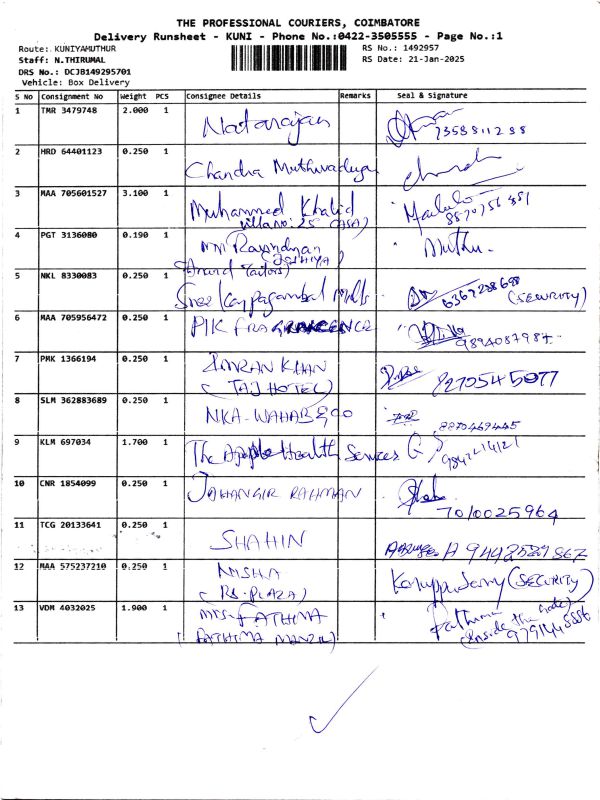 THE PROFESSIONAL COURIERS, COIMBATORE
Delivery Runsheet - KUNI - Phone No.:0422-3505555 - Page No.:1
Route: KUNIYAMUTHUR
RS No.: 1492957
Staff: N.THIRUMAL
RS Date: 21-Jan-2025
DRS No.: DCJB149295701
Vehicle: Box Delivery
S No Consignment No Weight PCS Consignee Details Remarks Seal & Signature
1 TMR 3479748 2.000 1 Natarajan 7358811288
2 HRD 64401123 0.250 1 Chandra
3 MAA 705601527 3.100 1 Muhammed Khalid
villa no: 25
4 PGT 3136080 0.190 1 Muthu.
(Anand
5 NKL 8330083 0.250 1 Sree Karpagambal Mills (SECURITY)
6 MAA 705956472 0.250 1 PIK 9894087987
7 PMK 1366194 0.250 1 IMRAN KHAN
(TAJ HOTEL)
8 SLM 362883689 0.250 1 NKA-WAHAB & CO
9 KLM 697034 1.700 1 The Health Services
10 CNR 1854099 0.250 1 JAHANGIR RAHMAN 7010025964
11 TCG 20133641 0.250 1 SHAHIN
12 MAA 575237210 0.250 1 NISHA Karuppusamy (SECURITY)
(RS-PLAZA)
13 VDM 4032025 1.900 1 MRS. FATHIMA Fathima
(FATHIMA MANZIL) (Inside the